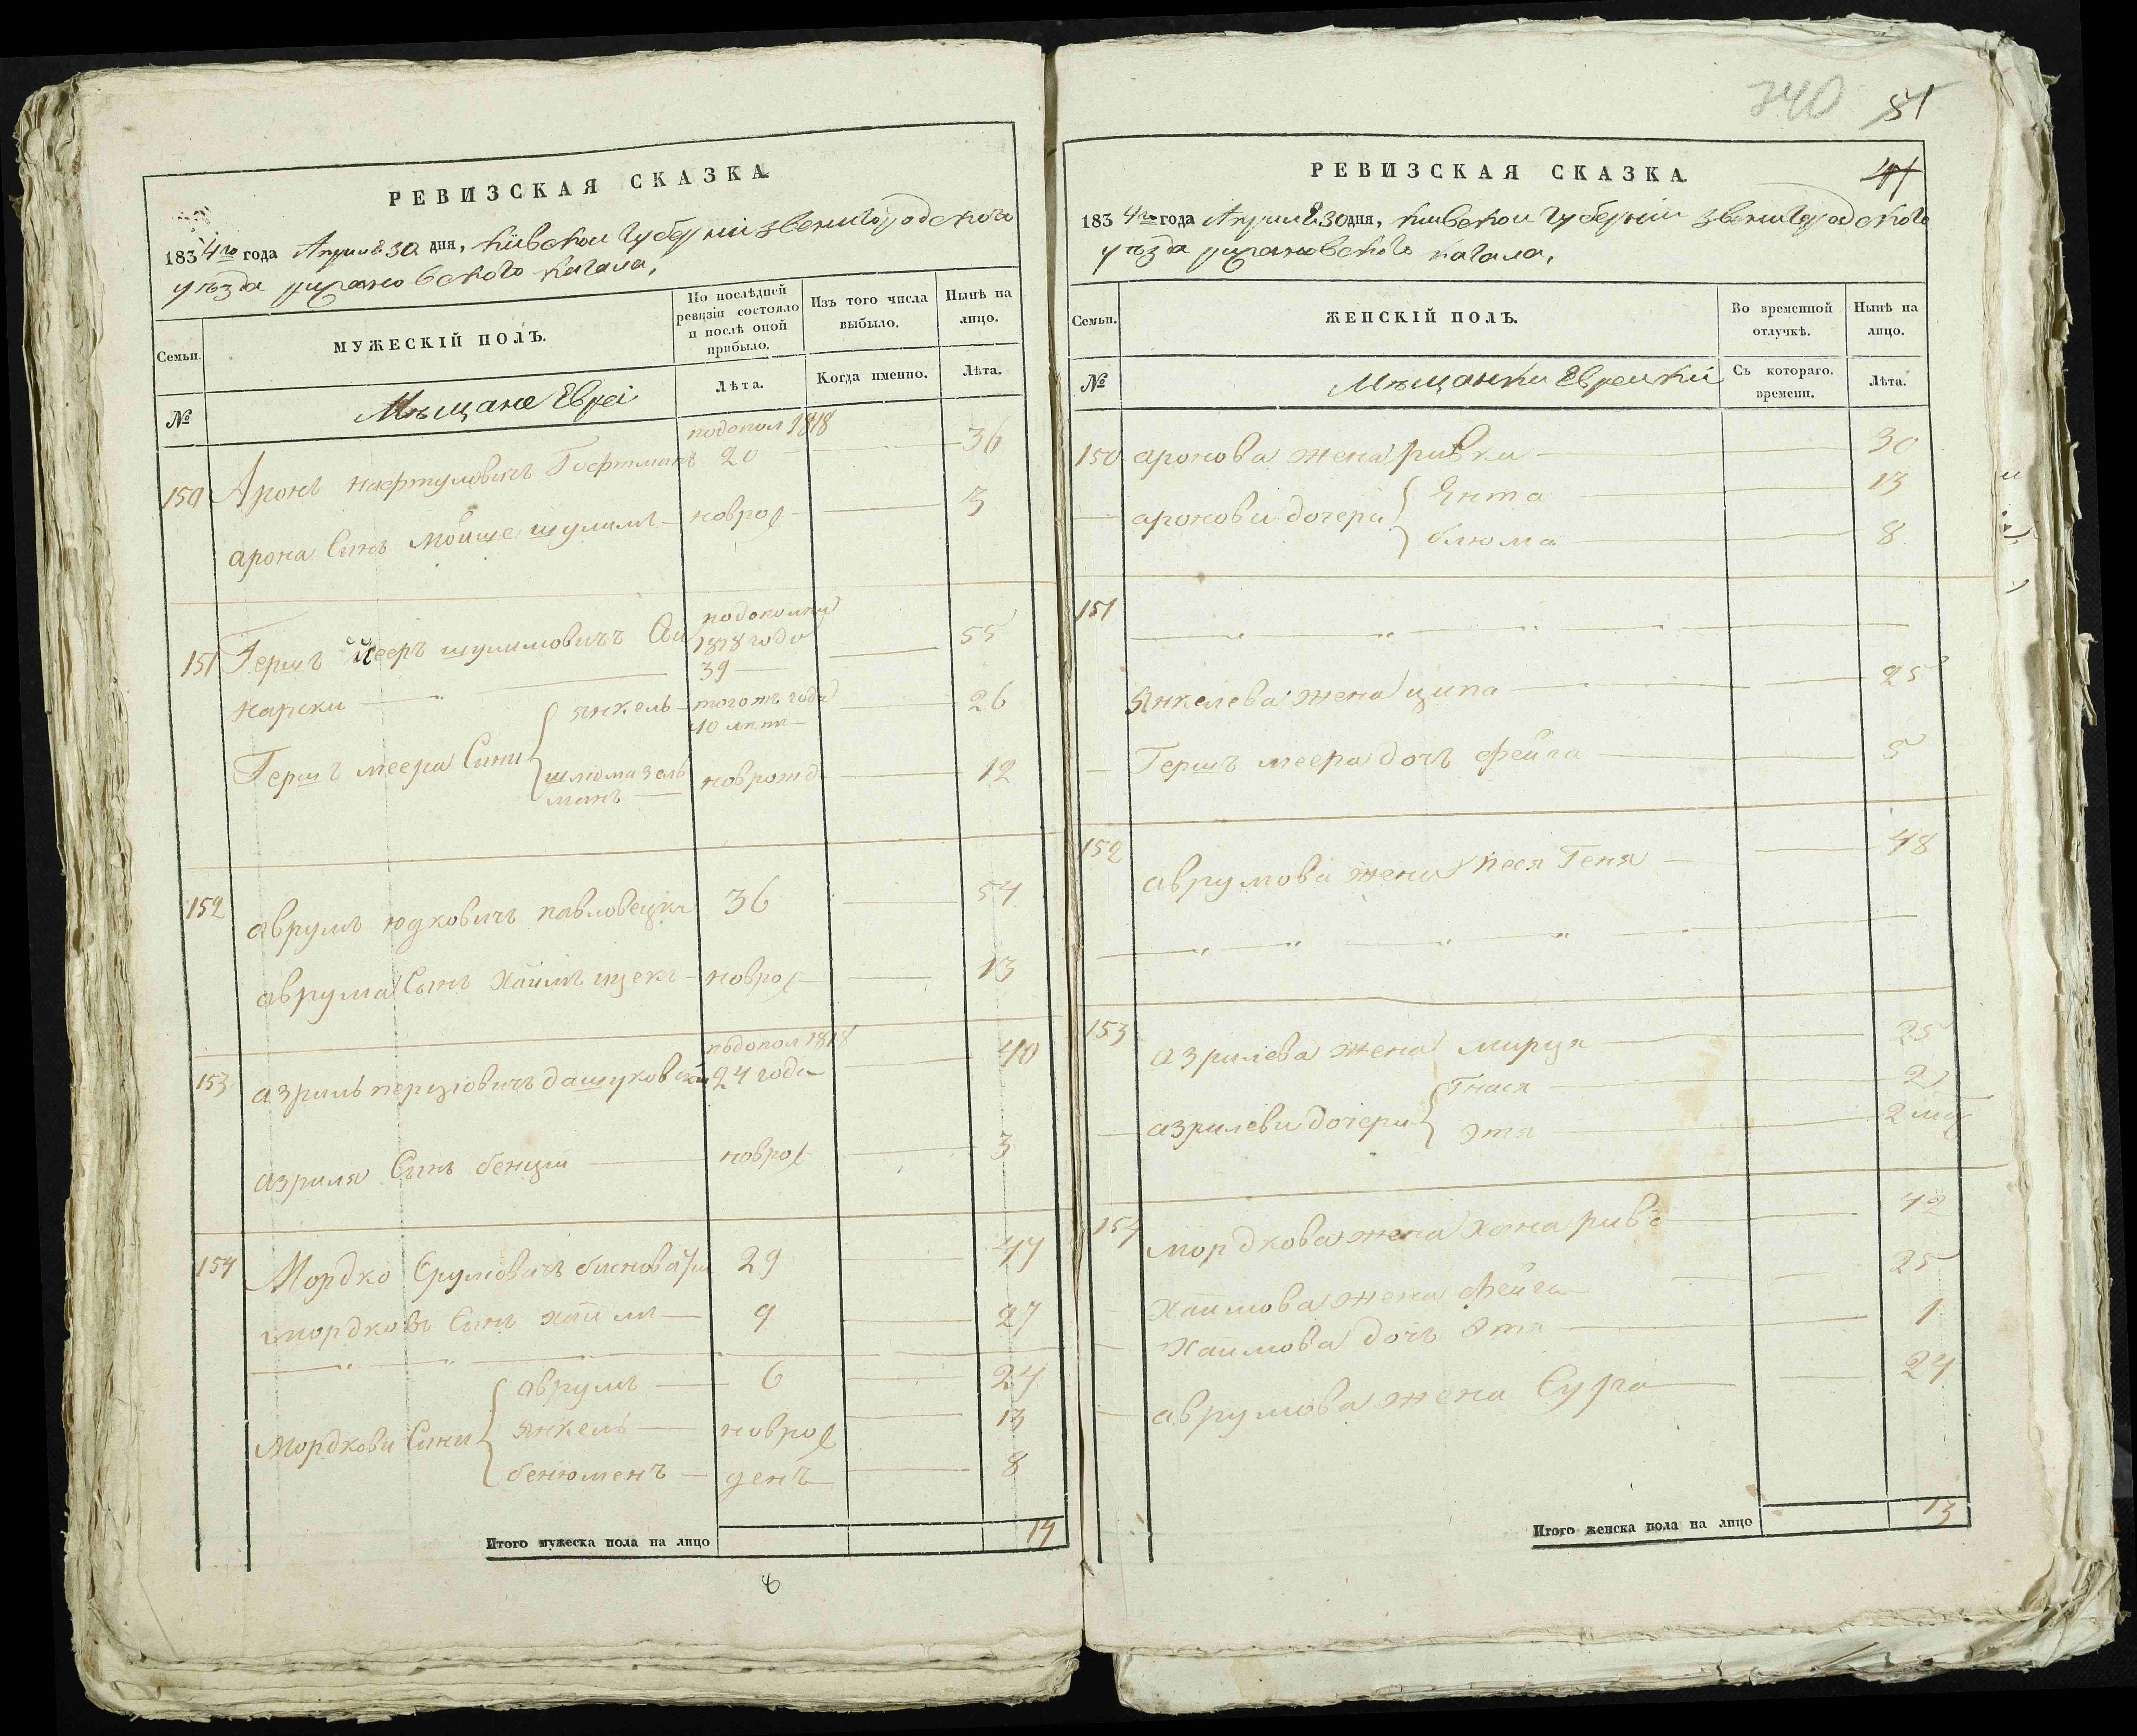 РЕВИЗСКАЯ СКАЗКА
1834го года Априля 30 дня, Кіевской губерніи Звенигородского
уѣзда рижановского кагала,
Семьи.
МУЖЕСКІЙ ПОЛЪ.
По послѣдней ревизіи состояло и послѣ оной прибыло.
Изъ того числа выбыло.
Нынѣ на лицо.
№
Мѣщане Евреи
Лѣта.
Когда именно.
Лѣта.
подопол 1818
150 Аронъ нафтуловичъ Гофтманъ 20 36
арона Синъ мойше шулимъ новрож 3
подополни
151 Гершъ Мееръ шулимовичъ 1818 года 55
нарски 39
Гершъ меера Сини
янкель тогожъ года 26
10 лѣтъ
шлиома зель новрожд 12
манъ
152 аврумъ юдковичъ павловецки 36 54
аврума Сынъ хаимъ ицекъ новрож 13
подопол 1818
153 азриль перцовичъ дашуковски 24 года 40
азриля Сынъ бенци новрож 3
154 Мордко Срулковичъ 29 47
мордковъ Синъ хаимъ 9 27
Мордкови Сини
аврумъ 6 24
янкель новрож 13
бенюменъ денъ 8
Итого мужеска пола на лицо 14
8
740 51
РЕВИЗСКАЯ СКАЗКА 41
1834го года Априля 30 дня, Кіевской губерніи Звенигородского
уѣзда рижановского кагала,
Семьи.
ЖЕНСКІЙ ПОЛЪ.
Во временной отлучкѣ.
Нынѣ на лицо.
№
Мѣщанки Еврейки
Съ котораго. времени.
Лѣта.
150 аронова жена ривки 30
аронови дочери
Ента 13
блюма 8
151
янкелева жена ципа 25
Гершъ меера дочъ фейга 5
152 аврумова жена Песя Геня 48
153 азрилева жена мирця 25
азрилеви дочери
Гнася 2
Этя 2 мѣс
154 мордкова жена хана рива 42
Хаимова жена Фейга 25
Хаимова дочъ Этя 1
аврумова жена Сура 24
Итого женска пола на лицо 13